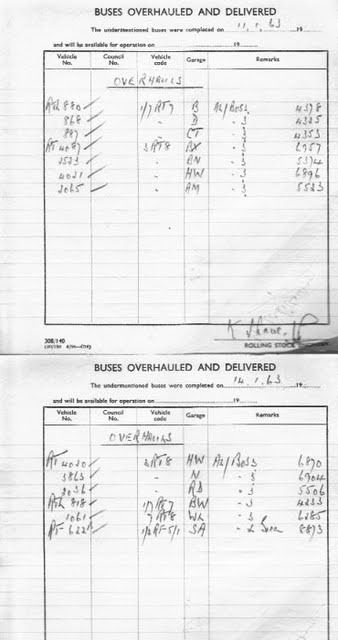 BUSES OVERHAULED AND DELIVERED
The undermentioned buses were completed on 11.1.63 19
and will be available for operation on 19
Vehicle No. Council No. Vehicle code Garage Remarks
OVERHAULS
880 1/7 RT7 B 4378
868 " D " 3 4325
887 " CT " 3 4353
RT 4087 3RT8 BX " 3 6957
2523 " AN " 3 5374
4021 " HW " 3 6896
2065 " AM " 3 5523
ROLLING STOCK
308/140
BUSES OVERHAULED AND DELIVERED
The undermentioned buses were completed on 14.1.63 19
and will be available for operation on 19
Vehicle No. Council No. Vehicle code Garage Remarks
OVERHAULS
RT 4020 3RT8 HW 6870
3863 " N " 3 6904
2036 " RD " 3 5506
818 1/7 RT7 BW " 3 4233
1061 7 RT8 WL " 3 6285
RT 622 1/2 RT 5/1 SA 8873